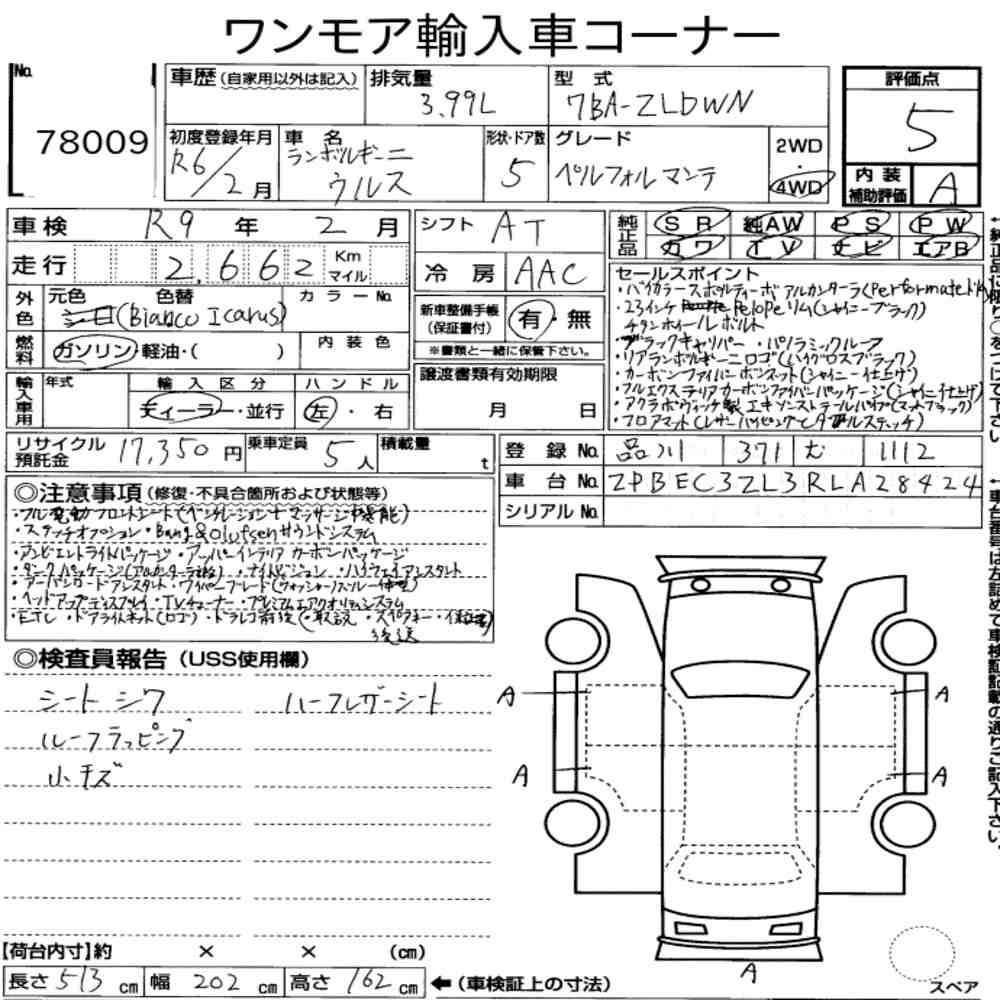 ワンモア輸入車コーナー
No. 78009
車歴 (自家用以外は記入)
排気量 3.99L
型式 7BA-ZLDWN
評価点 5
初度登録年月 R6/2月
車名 ランボルギーニ ウルス
形状・ドア数 5
グレード ペルフォルマンテ
2WD
4WD
内装補助評価 A
車検 R9年 2月
シフト AT
純正品 SR 純AW PS PW
カワ TV ナビ エアB
走行 2,662 Km マイル
冷房 AAC
外色 元色 色替 カラーNo.
シロ(Bianco Icarus)
燃料 ガソリン・軽油・( )
内装色
新車整備手帳(保証書付) 有・無
※書類と一緒に保管下さい。
セールスポイント
・バイカラースポルティーボアルカンターラ
・23インチ Pelopeリム(シャイニーブラック)
チタンホイールボルト
・ブラックキャリパー ・パノラミックルーフ
・リアランボルギーニロゴ(ハイグロスブラック)
・カーボンファイバーボンネット(シャイニー仕上げ)
・フルエクステリアカーボンファイバーパッケージ(シャイニ仕上げ)
・アクラポヴィッチ製エキゾーストテールパイプ(マットブラック)
・フロアマット(レザーパイピングとダブルステッチ)
輸入車用 年式
輸入区分 ディーラー・並行
ハンドル 左・右
譲渡書類有効期限
月 日
リサイクル預託金 17,350円
乗車定員 5人
積載量 t
登録No. 品川 371 む 1112
車台No. ZPBEC3ZL3RLA28424
シリアルNo.
◎注意事項(修復・不具合箇所および状態等)
・フル電動フロントシート(ベンチレーション+マッサージ機能)
・ステッチオプション・Bang&Olufsenサウンドシステム
・アンビエントライトパッケージ・アッパーインテリアカーボンパッケージ
・ダークパッケージ ・ナイトビジョン ・ハイウェイアシスタント
・アーバンロードアシスタント・ワイパーブレード(ウォッシャーノズル一体型)
・ヘッドアップディスプレイ・TVチューナー・プレミアムエアクオリティシステム
・ETC・ドアライトキット(ロゴ)・ドラレコ前後(・取説・スペアキー・
後送
◎検査員報告(USS使用欄)
シートシワ ハーフレザーシート
ルーフラッピング
小キズ
A
A
A
A
A
【荷台内寸】約 × × (cm)
長さ 513 cm 幅 202 cm 高さ 162 cm
←(車検証上の寸法)
スペア
←車台番号は左詰めで車検証記載の通りご記入下さい。